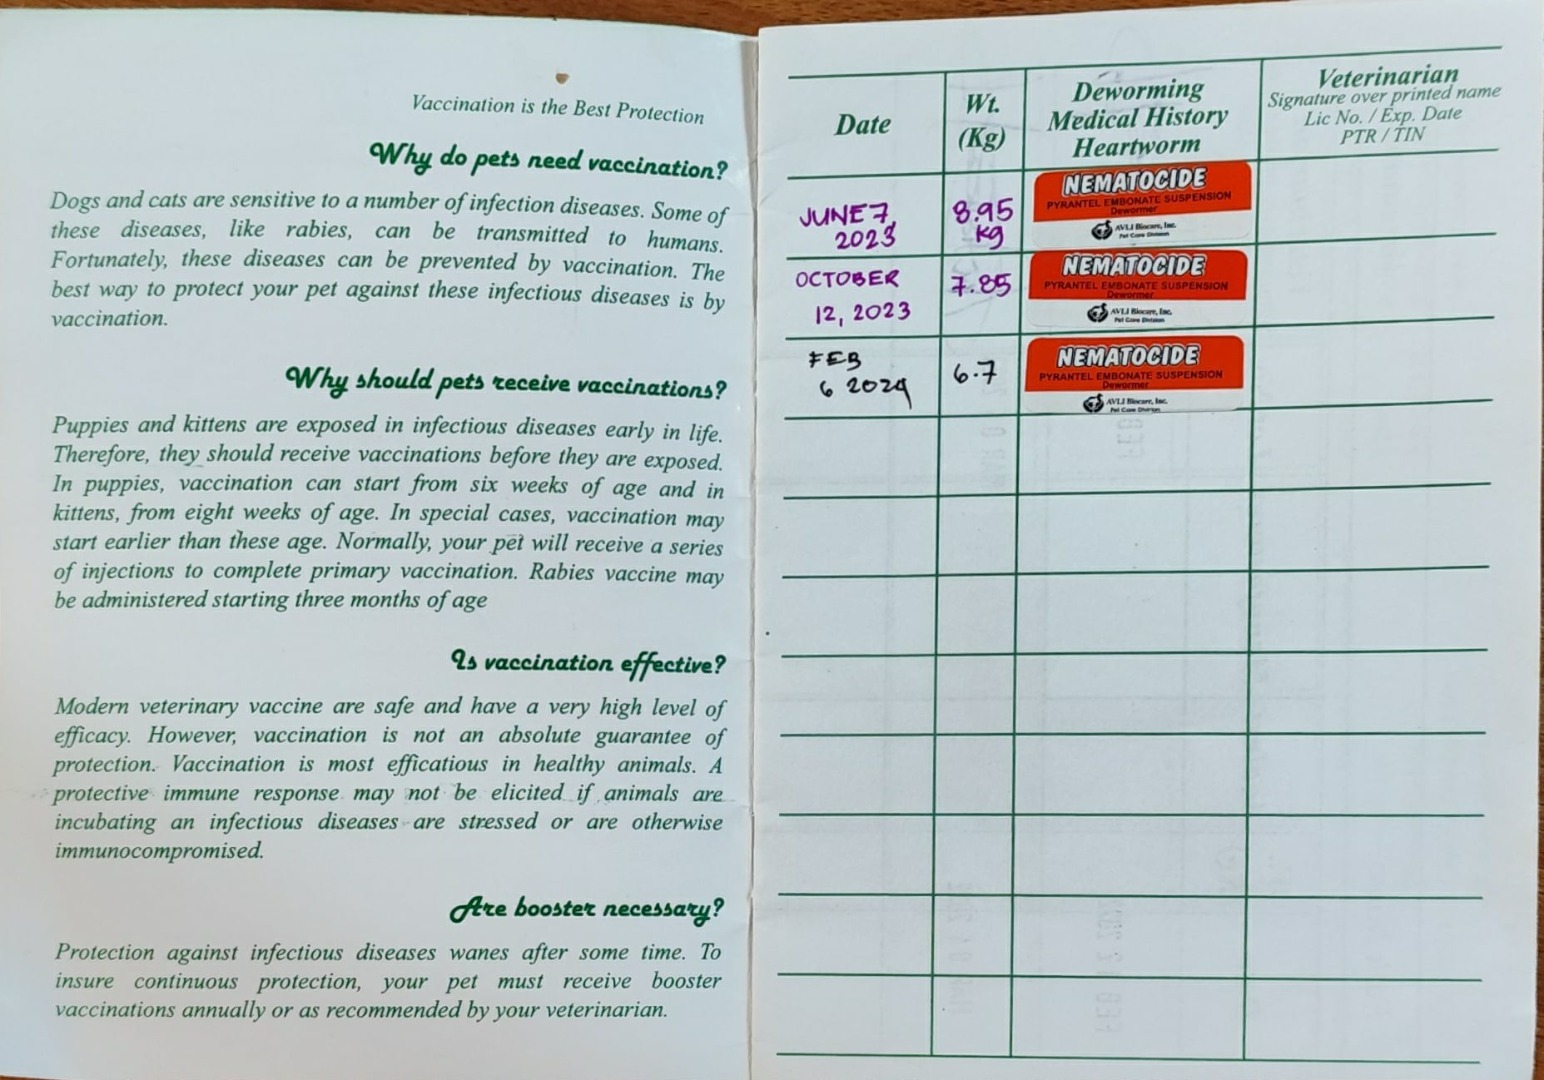 Vaccination is the Best Protection
Why do pets need vaccination?
Dogs and cats are sensitive to a number of infection diseases. Some of
these diseases, like rabies, can be transmitted to humans.
Fortunately, these diseases can be prevented by vaccination. The
best way to protect your pet against these infectious diseases is by
vaccination.
Why should pets receive vaccinations?
Puppies and kittens are exposed in infectious diseases early in life.
Therefore, they should receive vaccinations before they are exposed.
In puppies, vaccination can start from six weeks of age and in
kittens, from eight weeks of age. In special cases, vaccination may
start earlier than these age. Normally, your pet will receive a series
of injections to complete primary vaccination. Rabies vaccine may
be administered starting three months of age
Is vaccination effective?
Modern veterinary vaccine are safe and have a very high level of
efficacy. However, vaccination is not an absolute guarantee of
protection. Vaccination is most efficatious in healthy animals. A
protective immune response may not be elicited if animals are
incubating an infectious diseases are stressed or are otherwise
immunocompromised.
Are booster necessary?
Protection against infectious diseases wanes after some time. To
insure continuous protection, your pet must receive booster
vaccinations annually or as recommended by your veterinarian.
Date
Wt.
(Kg)
Deworming
Medical History
Heartworm
Veterinarian
Signature over printed name
Lic No. / Exp. Date
PTR / TIN
JUNE 7,
2023
8.95
kg
NEMATOCIDE
PYRANTEL EMBONATE SUSPENSION
Dewormer
AVLI Biocare, Inc.
Pet Care Division
OCTOBER
12, 2023
7.85
NEMATOCIDE
PYRANTEL EMBONATE SUSPENSION
Dewormer
AVLI Biocare, Inc.
Pet Care Division
FEB
6 2024
6.7
NEMATOCIDE
PYRANTEL EMBONATE SUSPENSION
Dewormer
AVLI Biocare, Inc.
Pet Care Division